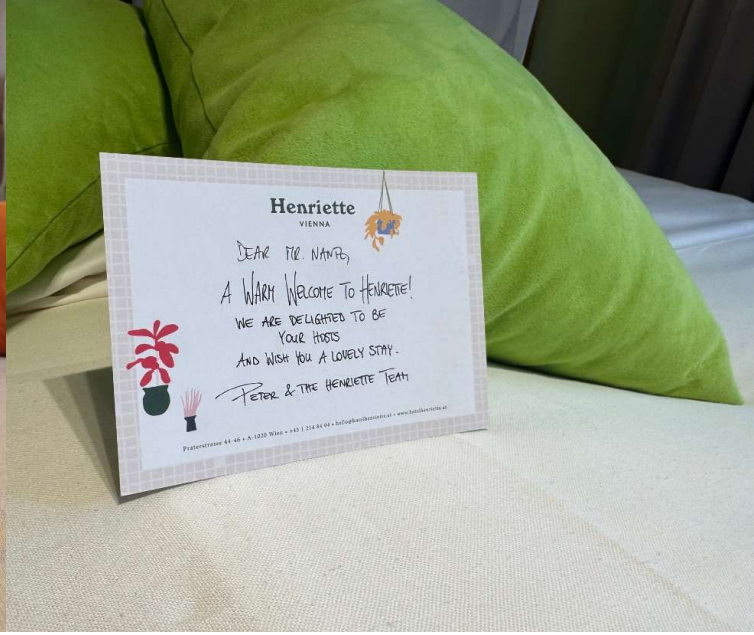 Henriette
VIENNA
DEAR MR.
A WARM WELCOME TO HENRIETTE!
WE ARE DELIGHTED TO BE
YOUR HOSTS
AND WISH YOU A LOVELY STAY.
PETER & THE HENRIETTE TEAM
Praterstrasse 44-46 • A-1020 Wien • +43 1 214 84 04 • hello@hotelhenriette.at • www.hotelhenriette.at